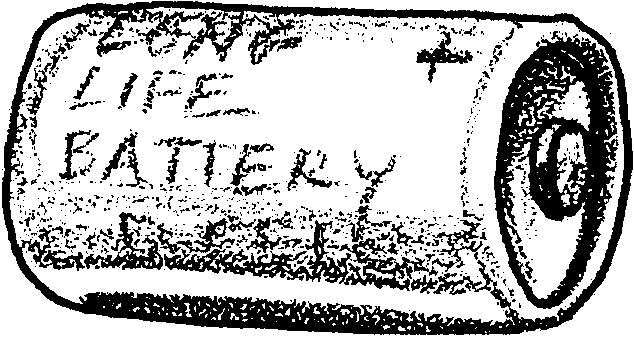 LONG +
LIFE
BATTERY